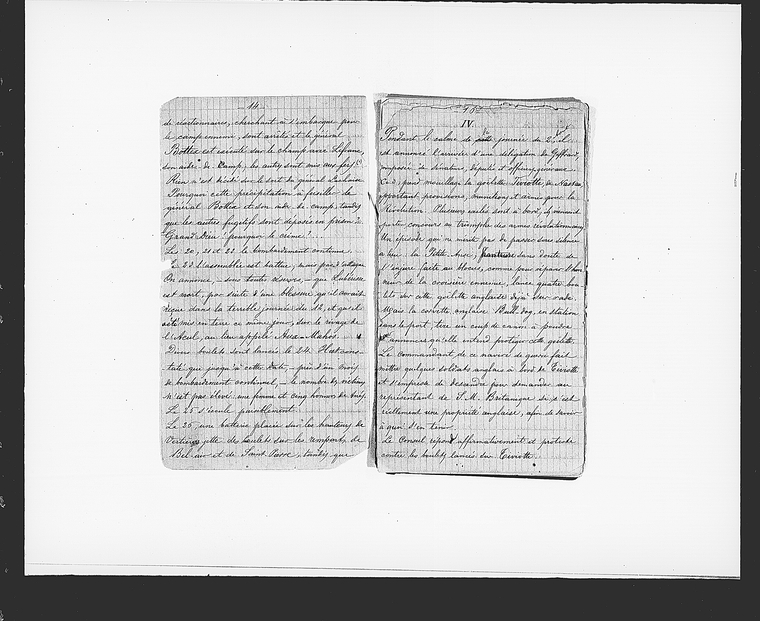 - 14 -
de réactionnaires, cherchant à s'embarquer pour
le camp ennemi, sont arrêtés et le général
Bottex est exécuté sur le champ avec Lefranc,
son aide de Camp, les autres sont mis aux fers.
Rien n'est décidé sur le sort du général
Pourquoi cette précipitation à fusiller le
général Bottex et son aide de camp, tandis
que les autres fugitifs sont déposés en prison?
Grand Dieu! pourquoi le crime?
Les 20, 21 et 22 le bombardement continue.
Le 23 l'assemblée est battue, mais pas d'attaque
On annonce, - sous toutes réserves, - que
est mort, par suite d'une blessure qu'il aurait
reçue dans la terrible journée du 12, et qu'il a
été mis en terre ce même jour, sur le rivage de
l'Acul, au lieu appelé Aux-Mahos.
Deux boulets sont lancés le 24. Il est cons-
taté que jusqu'à cette date, - près d'un mois
de bombardement continuel, - le nombre des victimes
n'est pas élevé: une femme et cinq hommes de tués
Le 25 s'écoule paisiblement.
Le 26, une batterie placée sur les hauteurs de
Vertières jette des boulets sur les remparts de
Bel-air et de Saint-Pierre, tandis que
- 15 -
IV.
Pendant le calme de cette journée du
est annoncé l'arrivée d'une délégation de Geffrard,
composée de sénateurs, députés et
C.à.d, prend mouillage la goëlette Teviotte, de Nassau,
apportant provisions, munitions et armes pour la
Révolution. Plusieurs exilés sont à bord, ils viennent
porter concours au triomphe des armes révolutionnaires
Un épisode qui ne mérite pas de passer sous silence
a lieu: la Petite Anse, furieuse sans doute de
l'injure faite au blocus, comme pour réparer l'hon-
neur de la croisière ennemie, lance quatre bou-
lets sur cette goëlette anglaise déjà sur rade.
Mais la corvette anglaise Bull-dog, en station
dans le port, tire un coup de canon à poudre
pour annoncer qu'elle entend protéger cette goëlette.
Le Commandant de ce navire de guerre fait
mettre quelques soldats anglais à bord de Teviotte
et s'empresse de descendre pour demander au
représentant de S. M. Britannique si c'est
réellement une propriété anglaise, afin de savoir
à quoi s'en tenir.
Le Consul répond affirmativement et proteste
contre les boulets lancés sur Teviotte.